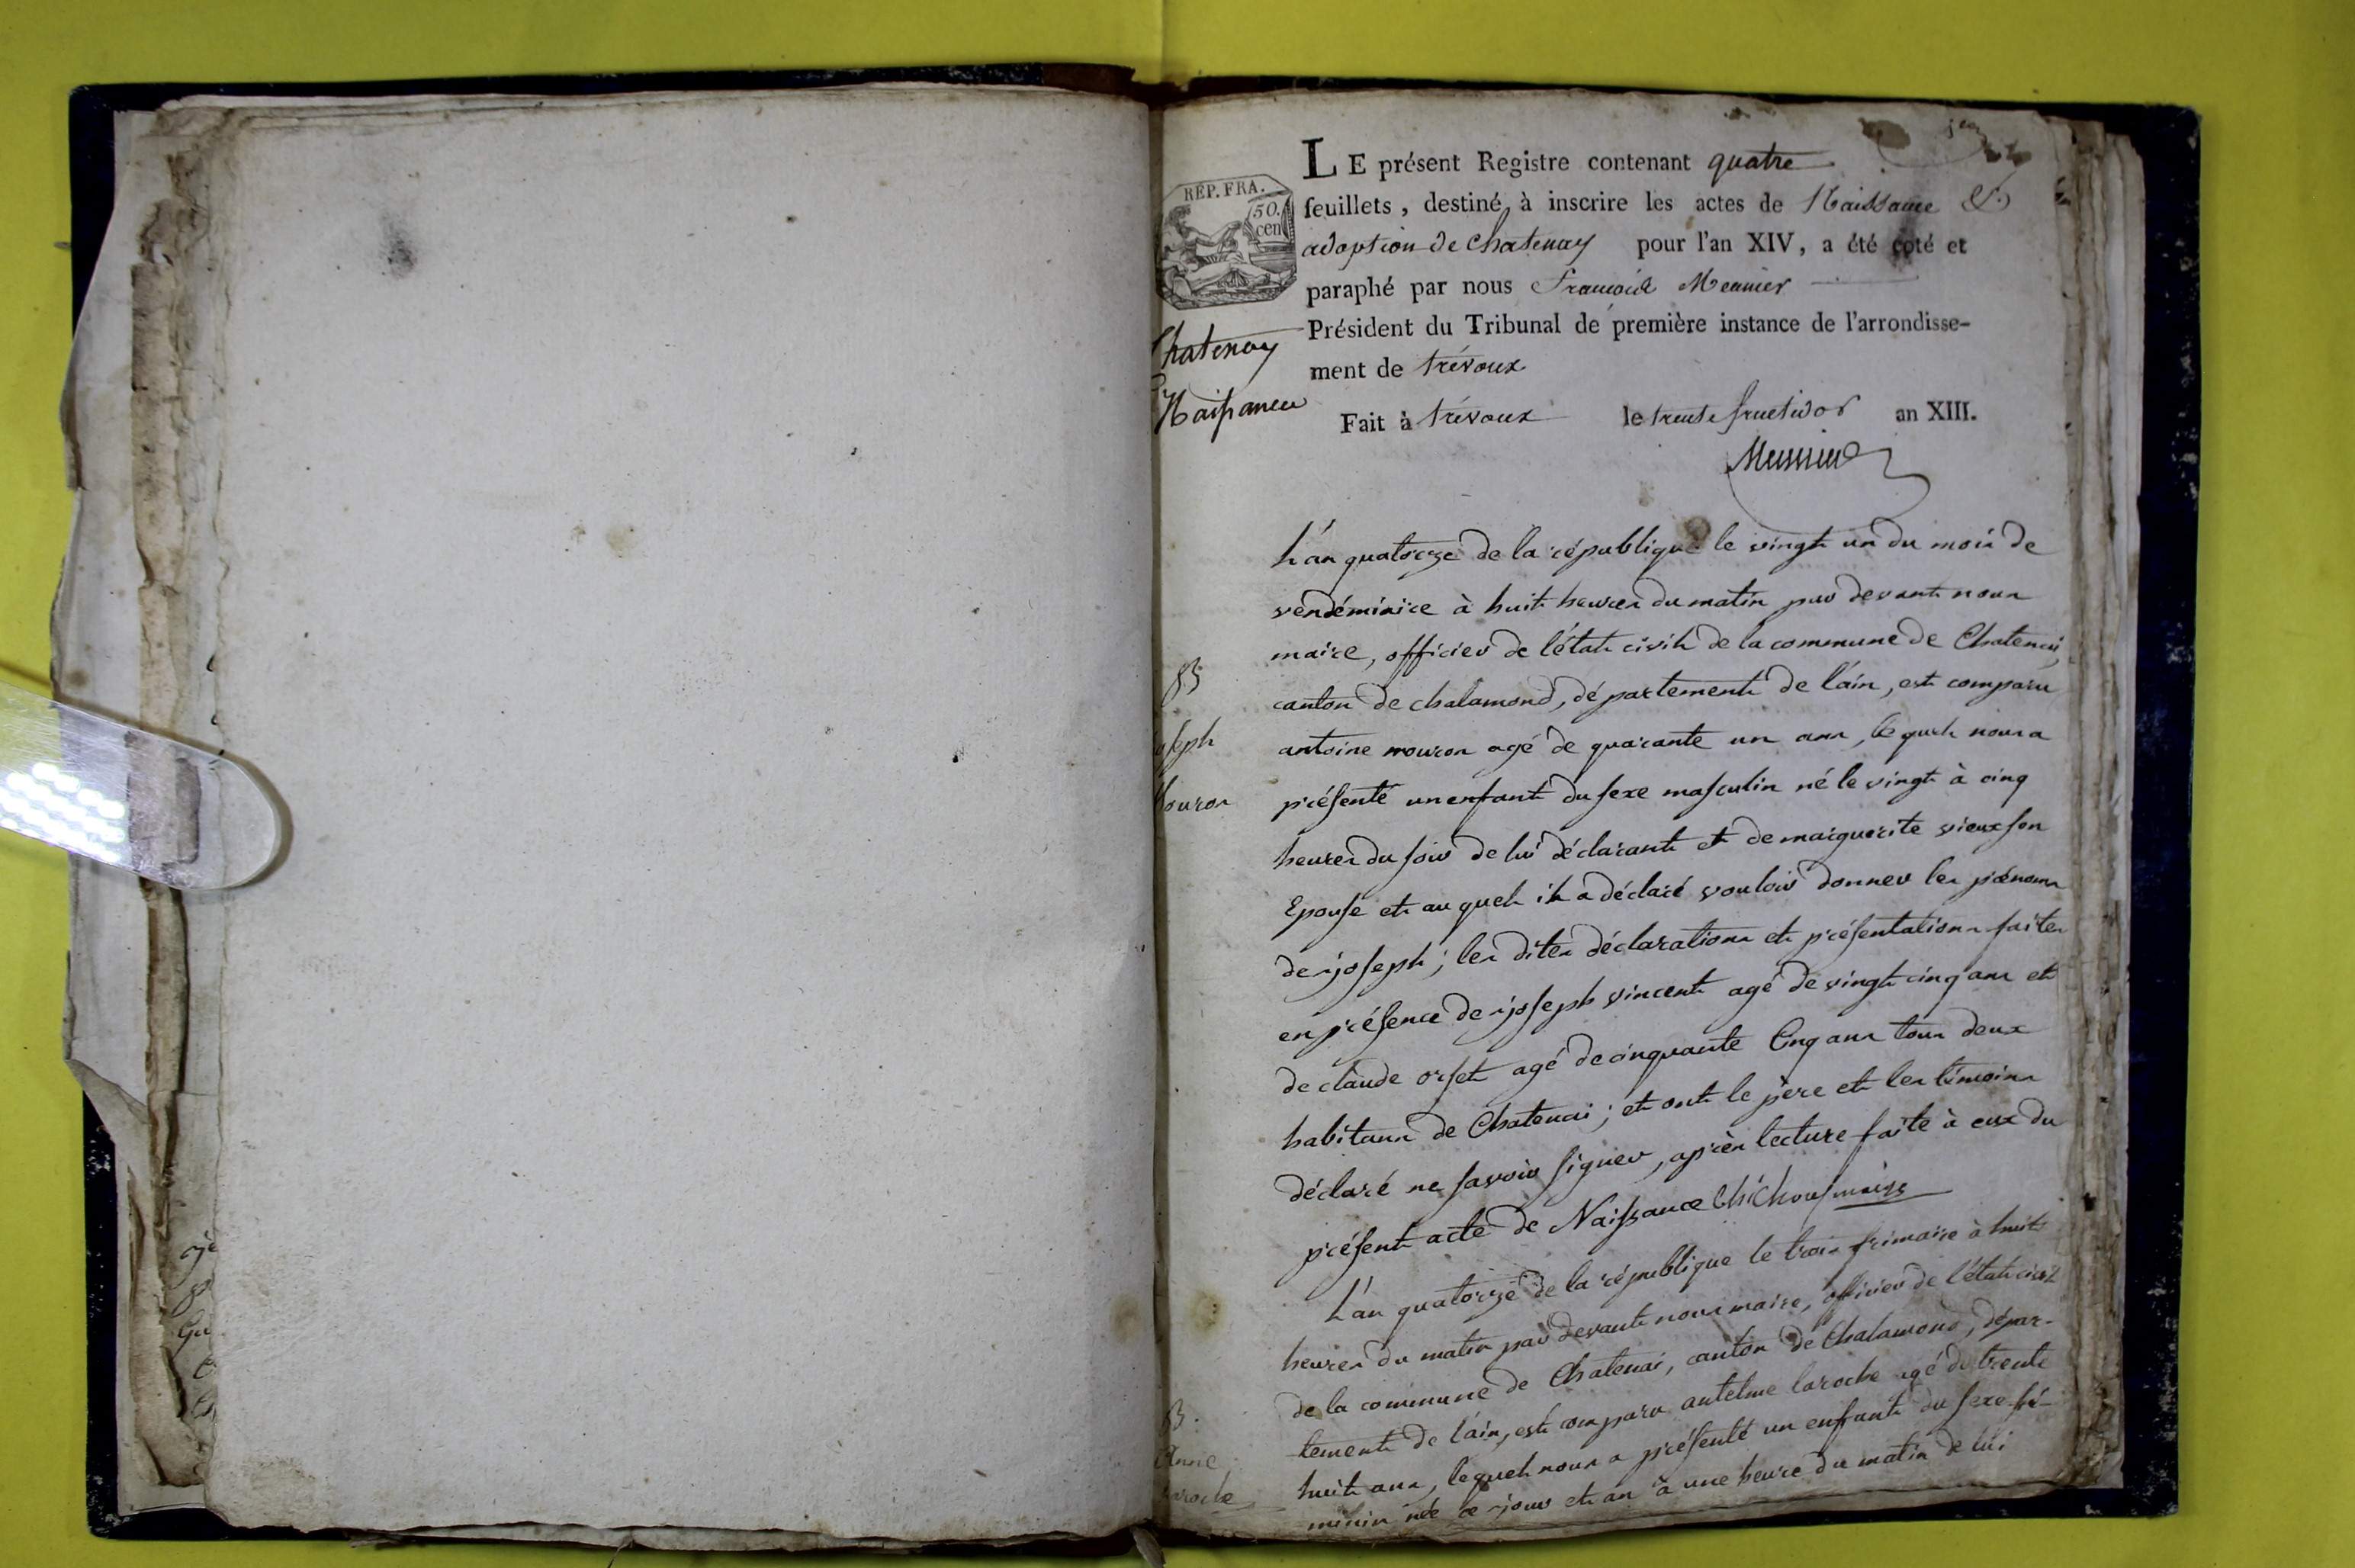 LE présent Registre contenant quatre
feuillets, destiné à inscrire les actes de Naissance &
adoption de Chatenay pour l'an XIV, a été coté et
paraphé par nous François Meunier
Président du Tribunal de première instance de l'arrondisse-
ment de trévoux
Fait à trévoux le trente fructidor an XIII.
REP. FRA.
50.
cen
Chatenay
Naissance
L'an quatorze de la république le vingt un du mois de
vendémiaire à huit heures du matin par devant nous
maire, officier de l'état civil de la commune de Chatenai,
canton de chalamond, département de l'ain, est comparu
antoine mouron agé de quarante un ans, lequel nous a
présenté un enfant du sexe masculin né le vingt à cinq
heures du soir de lui déclarant et de marguerite vieux son
Epouse et auquel il a déclaré vouloir donner les prénoms
de joseph; les dites déclarations et présentations faites
en présence de joseph vincent agé de vingt cinq ans et
de claude orset agé de cinquante Cinq ans tous deux
habitans de Chatenai; et ont le père et les témoins
déclaré ne savoir signer, après lecture faite à eux du
présent acte de Naissance maire
oseph
ouron
L'an quatorze de la république le trois frimaire à huit
heures du matin par devant nous maire, officier de l'état civil
de la commune de Chatenai, canton de Chalamond, dépar-
tement de l'ain, est comparu antelme laroche agé de trente
huit ans, lequel nous a présenté un enfant du sexe fé-
minin née ce jour et an à une heure du matin de lui
Anne
aroche